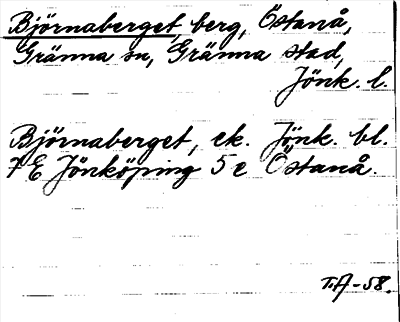 Björnaberget, berg, Östanå,
Gränna sn, Gränna stad,
Jönk. l.
Björnaberget, ek. Jönk. bl.
7 E Jönköping 5 e Östanå.
T.A-58.